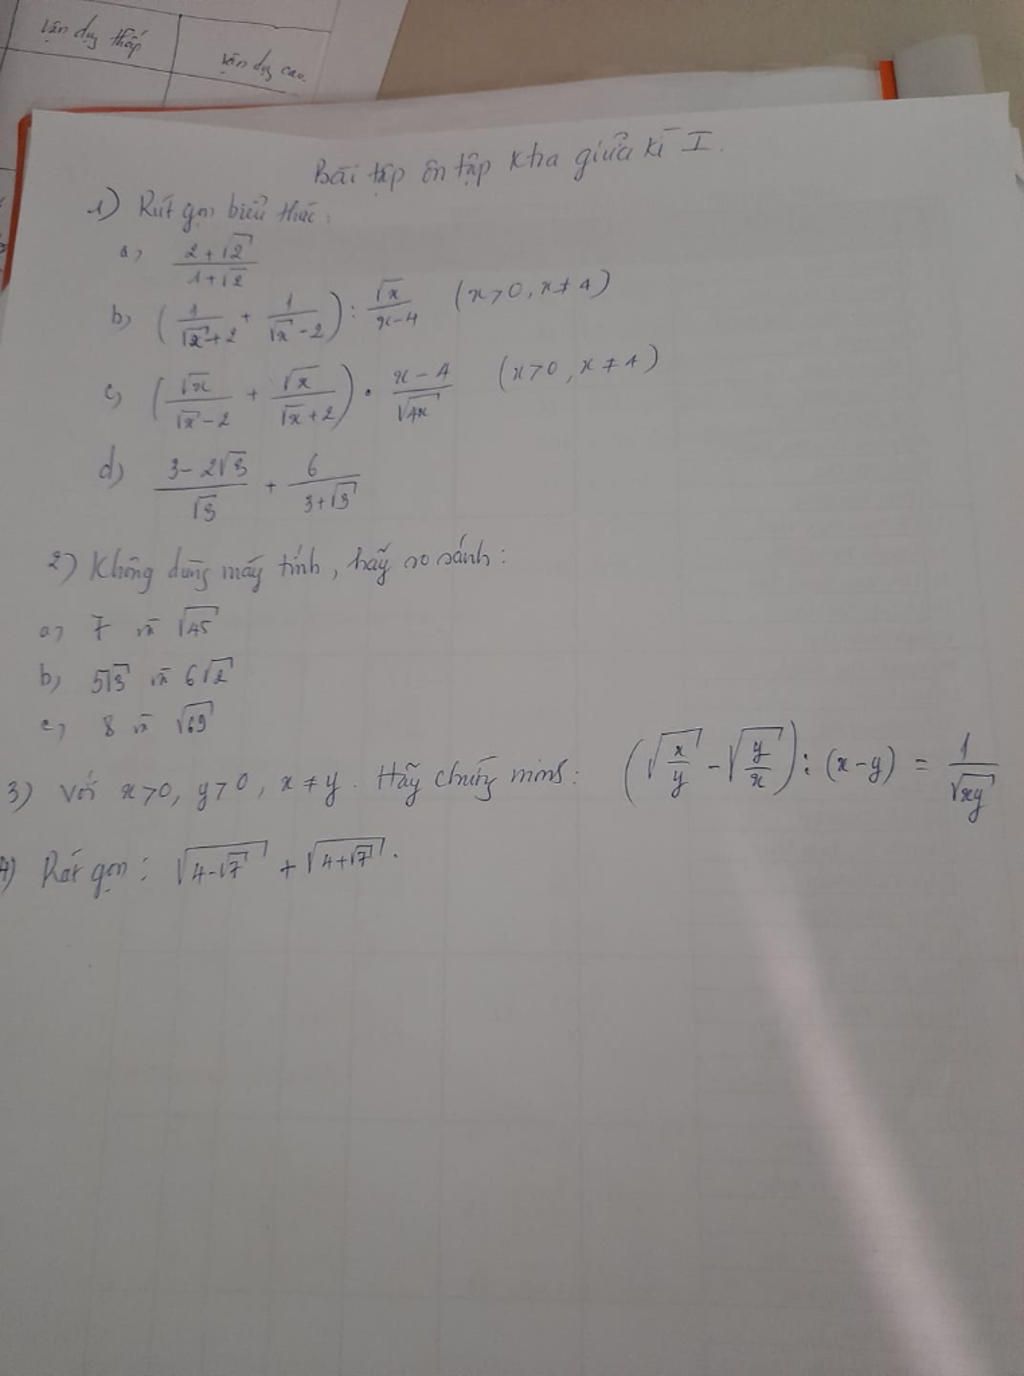 Vận dụng thấp
Vận dụng cao.
Bài tập ôn tập ktra giữa kì I.
1) Rút gọn biểu thức:
a, (2+√2)/(1+√2)
b, (1/(√x+2) + 1/(√x-2)) : √x/(x-4) (x>0, x≠4)
c, (√x/(√x-2) + √x/(√x+2)) · (x-4)/√4x (x>0, x≠4)
d) (3-2√3)/√3 + 6/(3+√3)
2) Không dùng máy tính, hãy so sánh:
a, 7 và √45
b, 5√3 và 6√2
c, 8 và √69
3) Với x>0, y>0, x≠y. Hãy chứng minh: (√(x/y) - √(y/x)) : (x-y) = 1/√xy
4) Rút gọn: √(4-√7) + √(4+√7).